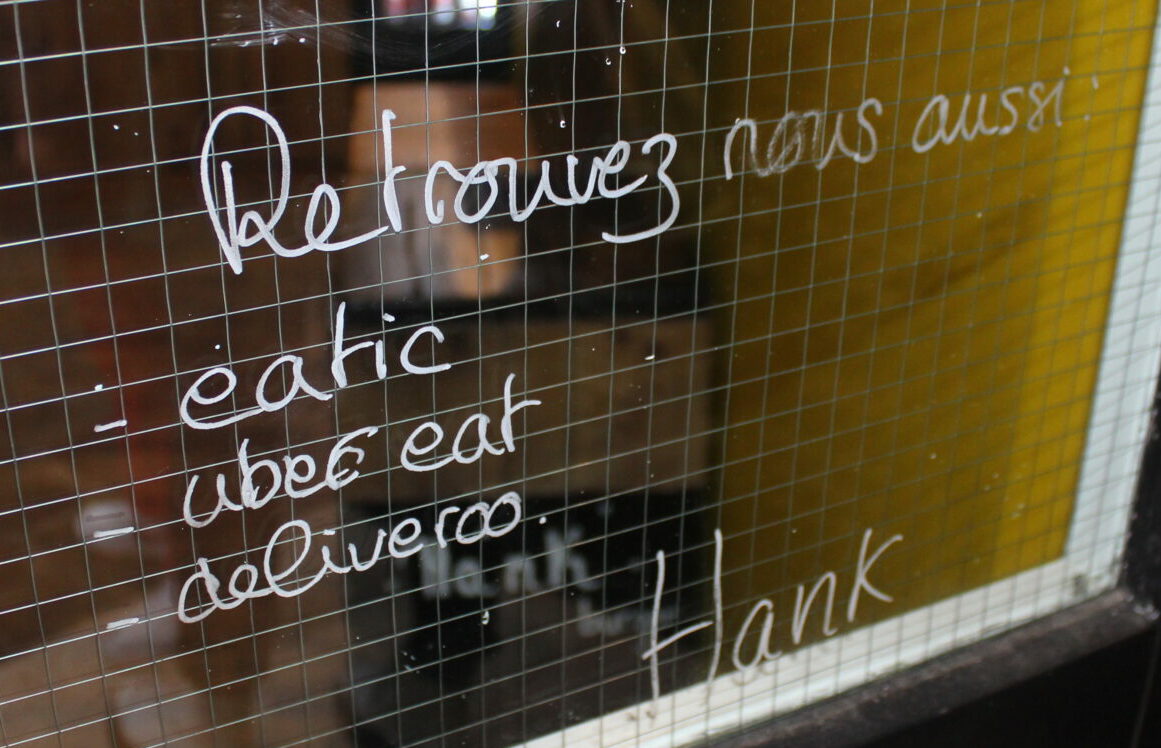 Retrouvez nous aussi
- eatic
- uber eat
- deliveroo.
Hank
Hank